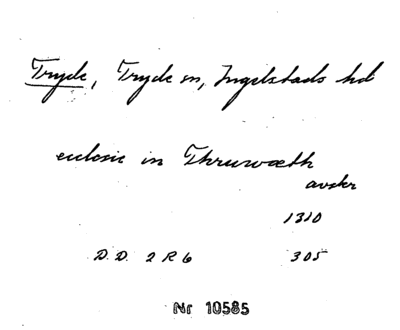 Tryde, Tryde sn, Ingelstads hd
ecclosie in Thruwæth
avskr
1310
D. D. 2 R 6 305
Nr 10585